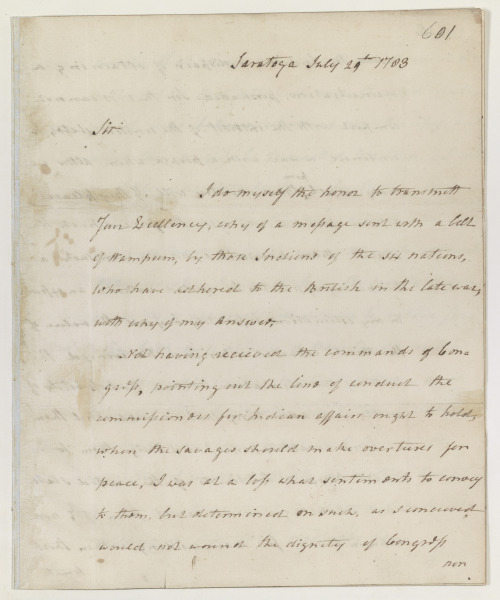 601
Saratoga July 29t 1783
Sir
I do myself the honor to transmitt
Your Excellency, copy of a message sent with a belt
of Wampum, by those Indians of the six nations,
who have adhered to the British in the late war,
with copy of my Answer.
Not having recieved the commands of Con=
gress, pointing out the line of conduct the
commissioners for Indian affairs ought to hold,
when the savages should make overtures for
peace, I was at a loss what sentiments to convey
to them, but determined on such, as I conceived
would not wound the dignity of Congress
nor